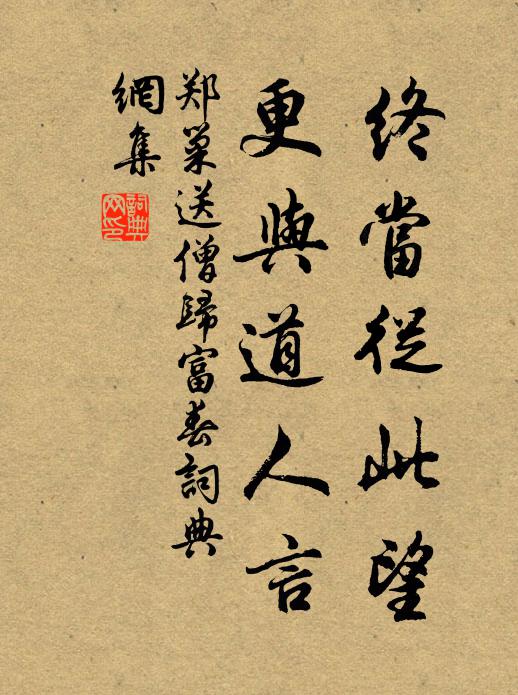 終當從此望
更與道人言
郑巢送僧歸富春詞典
網集
詞典网印